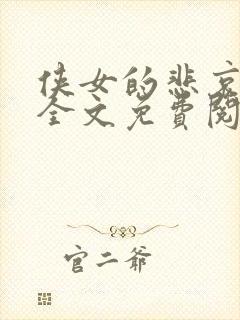 侠女的悲哀
全文免费阅
官二爷